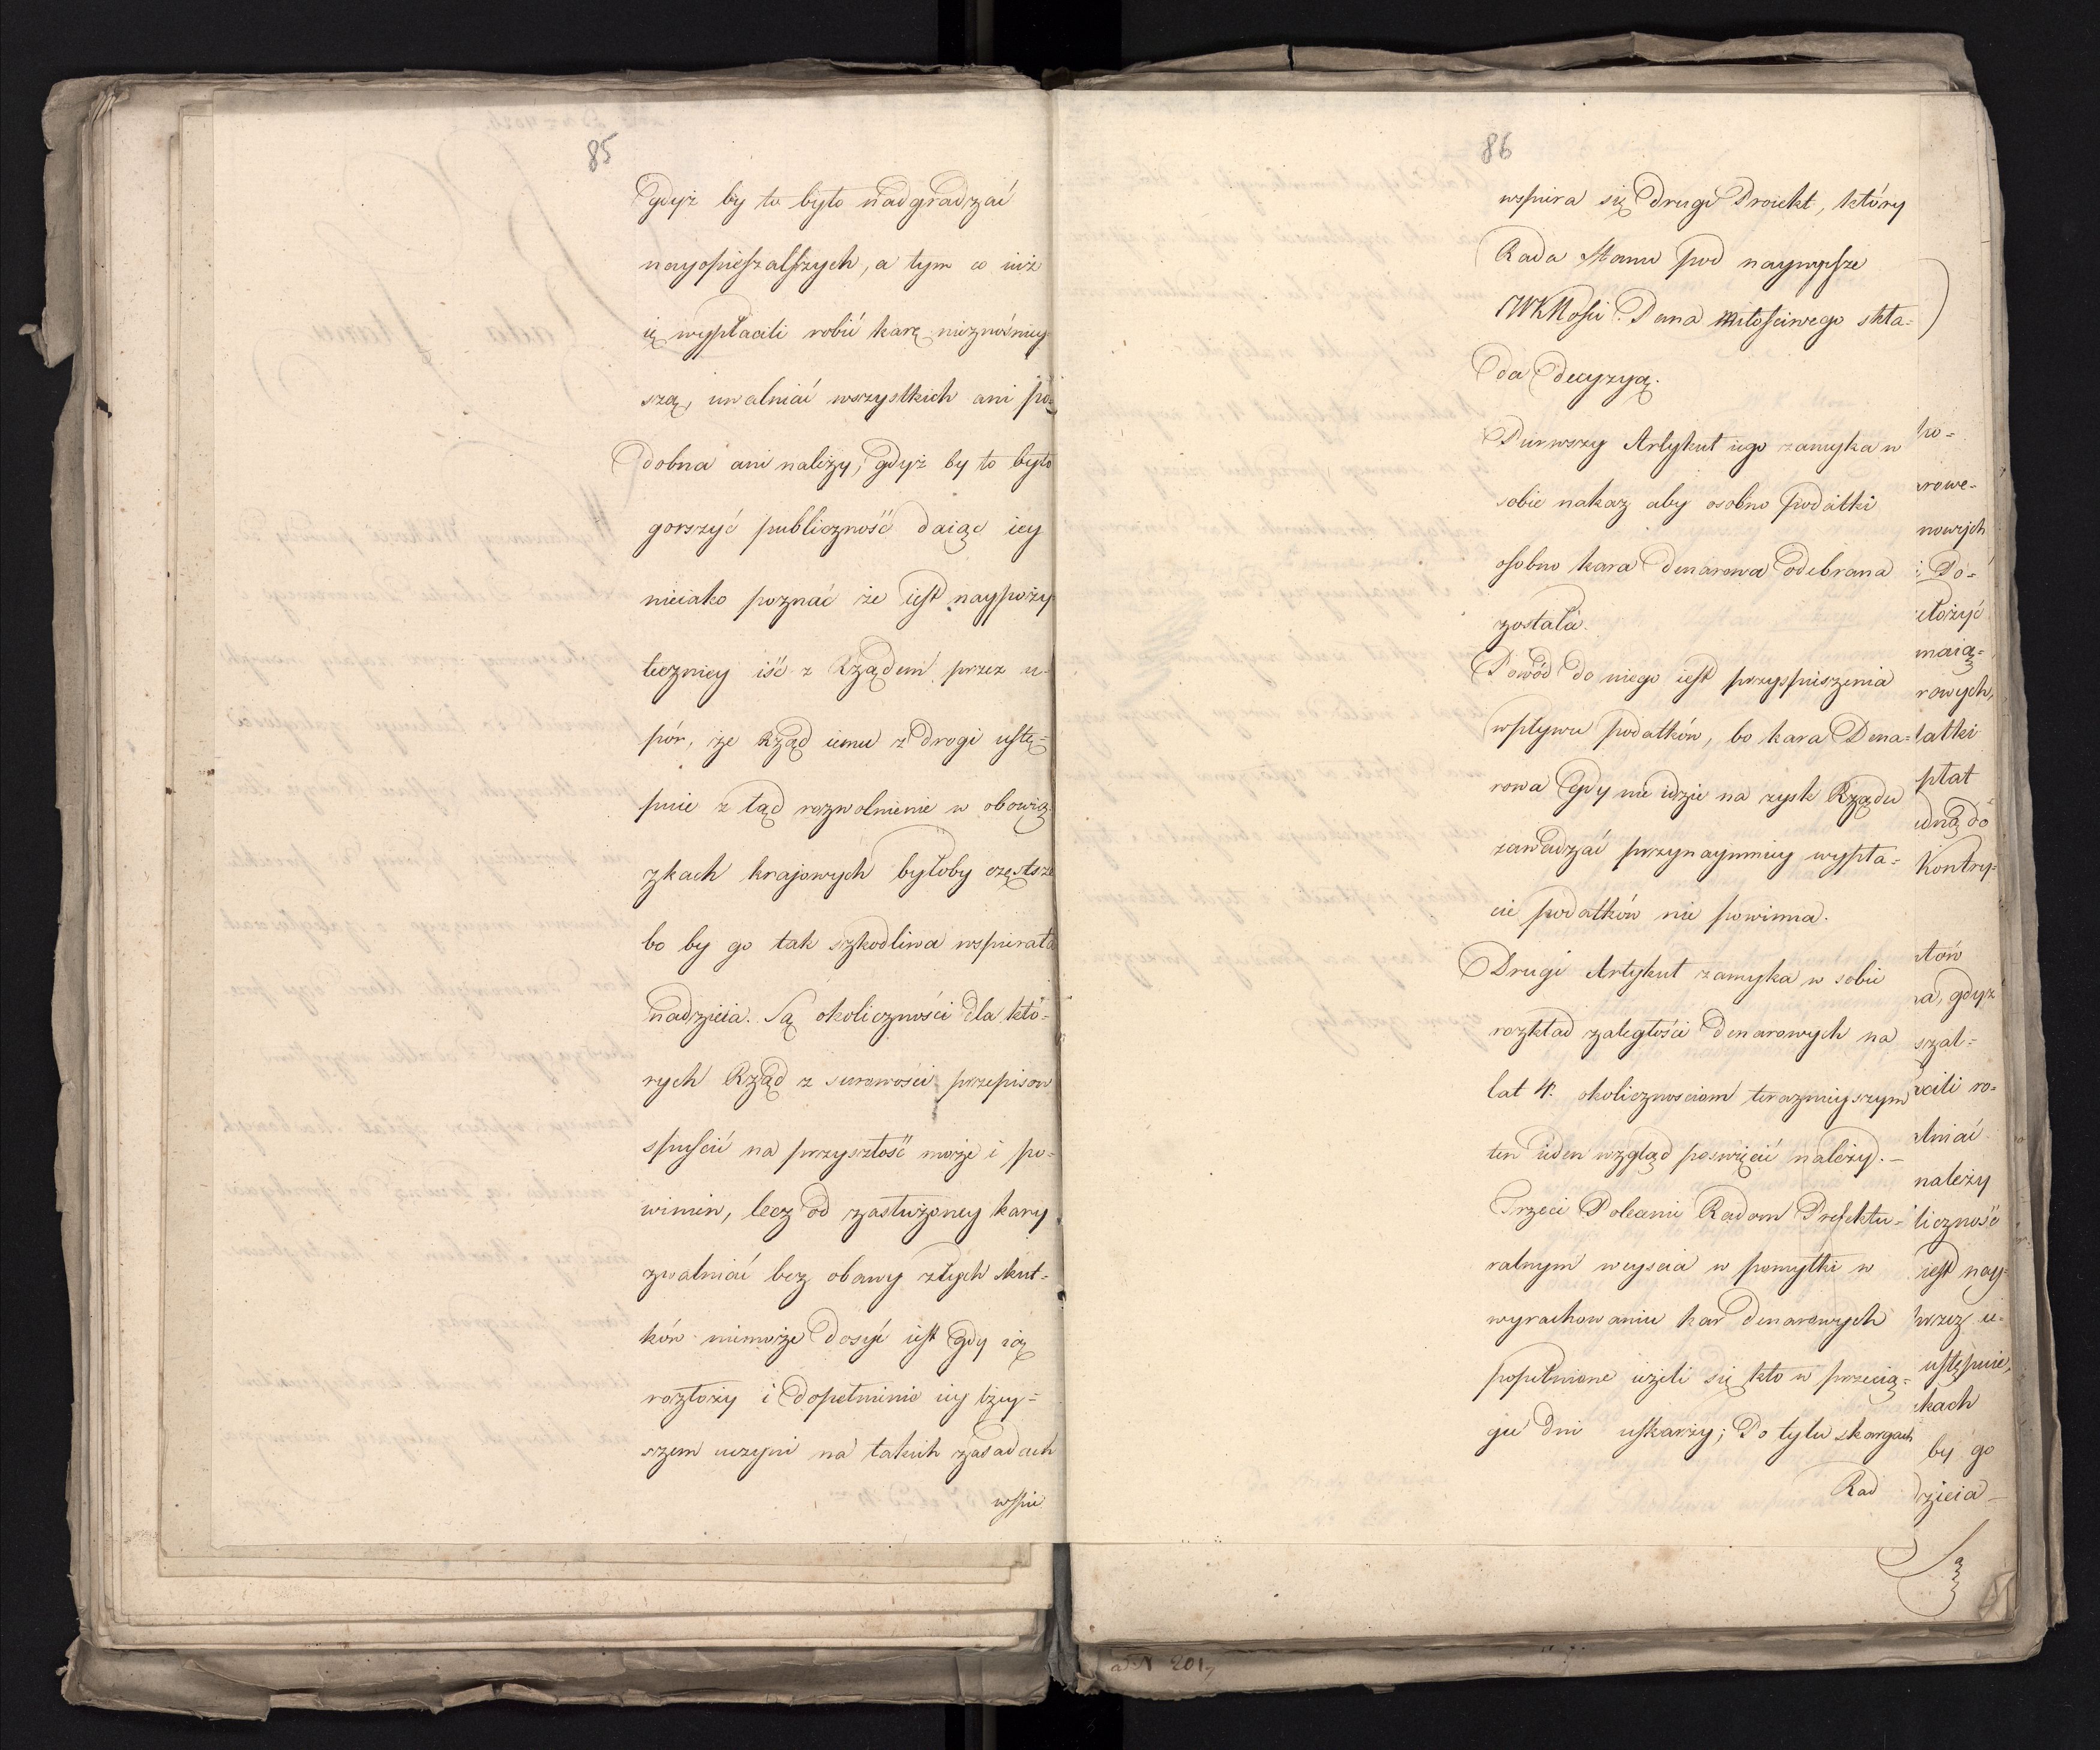 85
gdyż by to było nadgradzać
nayopieszalszych, a tym co iuż
ią wypłacili robić karę nieznośniey=
szą, uwalniać wszystkich ani po=
dobna ani należy, gdyż by to było
gorszyć publiczność daiąc iey
nieiako poznać że iest naypoży
teczniey iść z Rządem przez u=
pór, że Rząd iemu z drogi ustę=
puie z tąd rozwolnienie w obowią
zkach krajowych byłoby częstsze
bo by go tak szkodliwa wspierała
nadzieia. Są okoliczności dla któ=
rych Rząd z surowości przepisow
spuścić na przyszłość może i po=
winien, lecz od zasłużoney kary
zwalniać bez obawy złych skut=
ków niemoże dosyć iest gdy ią
rozłoży i dopełnienie iey lżey=
szem uczyni na takich zasadach
wspie
86
wspiera się drugi Proiekt, który
Rada Stanu pod naywyższe
WKMości Pana Miłościwego skła=
da decyzyą.
Pierwszy Artykuł iego zamyka w
sobie nakaz aby osobno podatki
osobno kara denarowa odebrana
została.
Powód do niego iest przyspieszenia
wpływu podatków, bo kara Dena=
rowa gdy nie idzie na zysk Rządu
zawadzać przynaymniey wypła=
cie podatków nie powinna.
Drugi Artykuł zamyka w sobie
rozkład zaległości denarowych na
lat 4. okolicznosciom teraznieyszym
ten ieden wzgląd poswięcić należy.—
Trzeci Poleami Radom Prefektu=
ralnym weyscia w pomyłki w
wyrachowaniu kar denarowych
popełnione ieżeli się kto w przecią=
gu dni uskarzy; do tylu skargach
Rad
po=
arowe=
nowych
i Do=
ełożyć
maią=
rowych,
latki
płat
edną do
Kontry=
tów
na, gdyż
szal=
acili ro=
alniać
należy
liczność
iest nay=
przez u=
ustępuie,
kach
by go
dzieia—
Są
ad N 201,